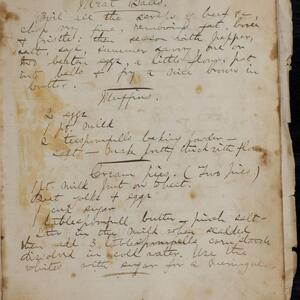 Meat Balls.
Boil all the scraps of beef &c,
chop fine, removing fat, bone
& gristle; then season with pepper,
salt, sage, summer savory, one or
two beaten eggs, a little flour, put
into balls & fry a nice brown in
butter.
Muffins.
2 eggs
1 pt. milk
2 teaspoonfulls baking powder
Salt — Make pretty thick with flour
Cream pies. (Two pies)
1 pt. milk put on to heat.
Beat yolks 4 eggs
1 cup sugar
1 tablespoonfull butter — pinch salt-
stir in the milk when scalded
then add 3 tablespoonfulls corn starch
dissolved in cold water. Use the
whites with sugar for a meringue